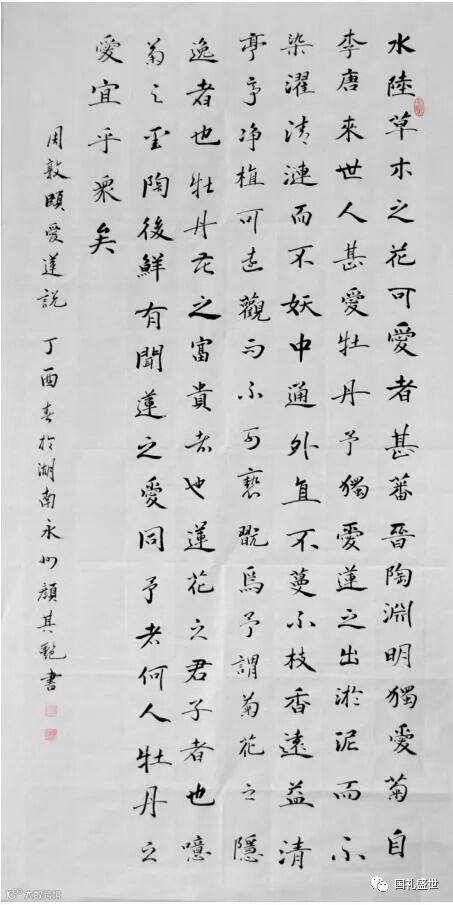 水陸草木之花可愛者甚蕃晉陶淵明獨愛菊自
李唐來世人甚愛牡丹予獨愛蓮之出淤泥而不
染濯清漣而不妖中通外直不蔓不枝香遠益清
亭亭净植可遠觀而不可褻翫焉予謂菊花之隱
逸者也牡丹花之富貴者也蓮花之君子者也噫
菊之愛陶後鮮有聞蓮之愛同予者何人牡丹之
愛宜乎衆矣
周敦頤愛蓮説 丁酉春於湖南永州顏其艷書
国礼盛世